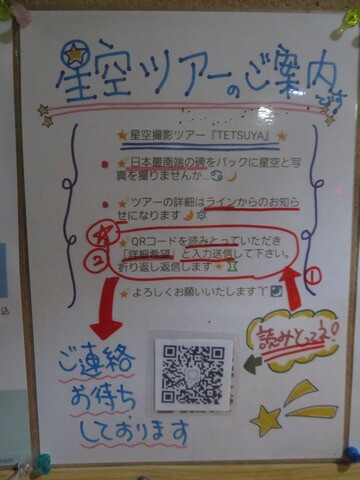 星空ツアーのご案内です
★星空撮影ツアー『TETSUYA』★
★日本最南端の碑をバックに星空と写
真を撮りませんか…♋🌙
★ツアーの詳細はラインからのお知ら
せになります🌙🔯
★QRコードを読みとっていただき
「詳細希望」と入力送信して下さい。
折り返し返信します
②
①
★よろしくお願いいたします♈
読みとってネ!
ご連絡
お待ち
しております